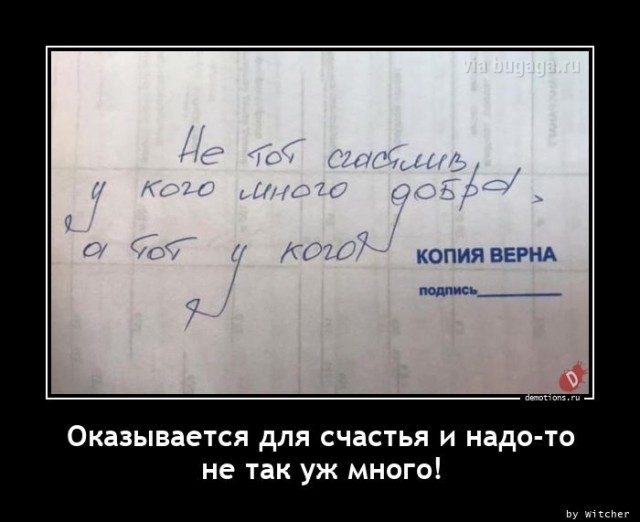 via bugaga.ru
Не тот счастлив,
у кого много добра,
а тот у кого
КОПИЯ ВЕРНА
подпись
demotions.ru
Оказывается для счастья и надо-то
не так уж много!
by Witcher